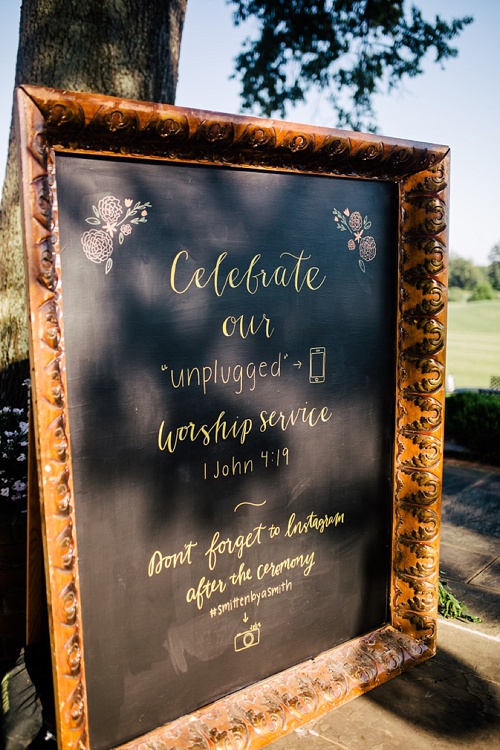 Celebrate
our
"unplugged" →
Worship service
1 John 4:19
~
Don't forget to Instagram
after the ceremony
#smittenbyasmith